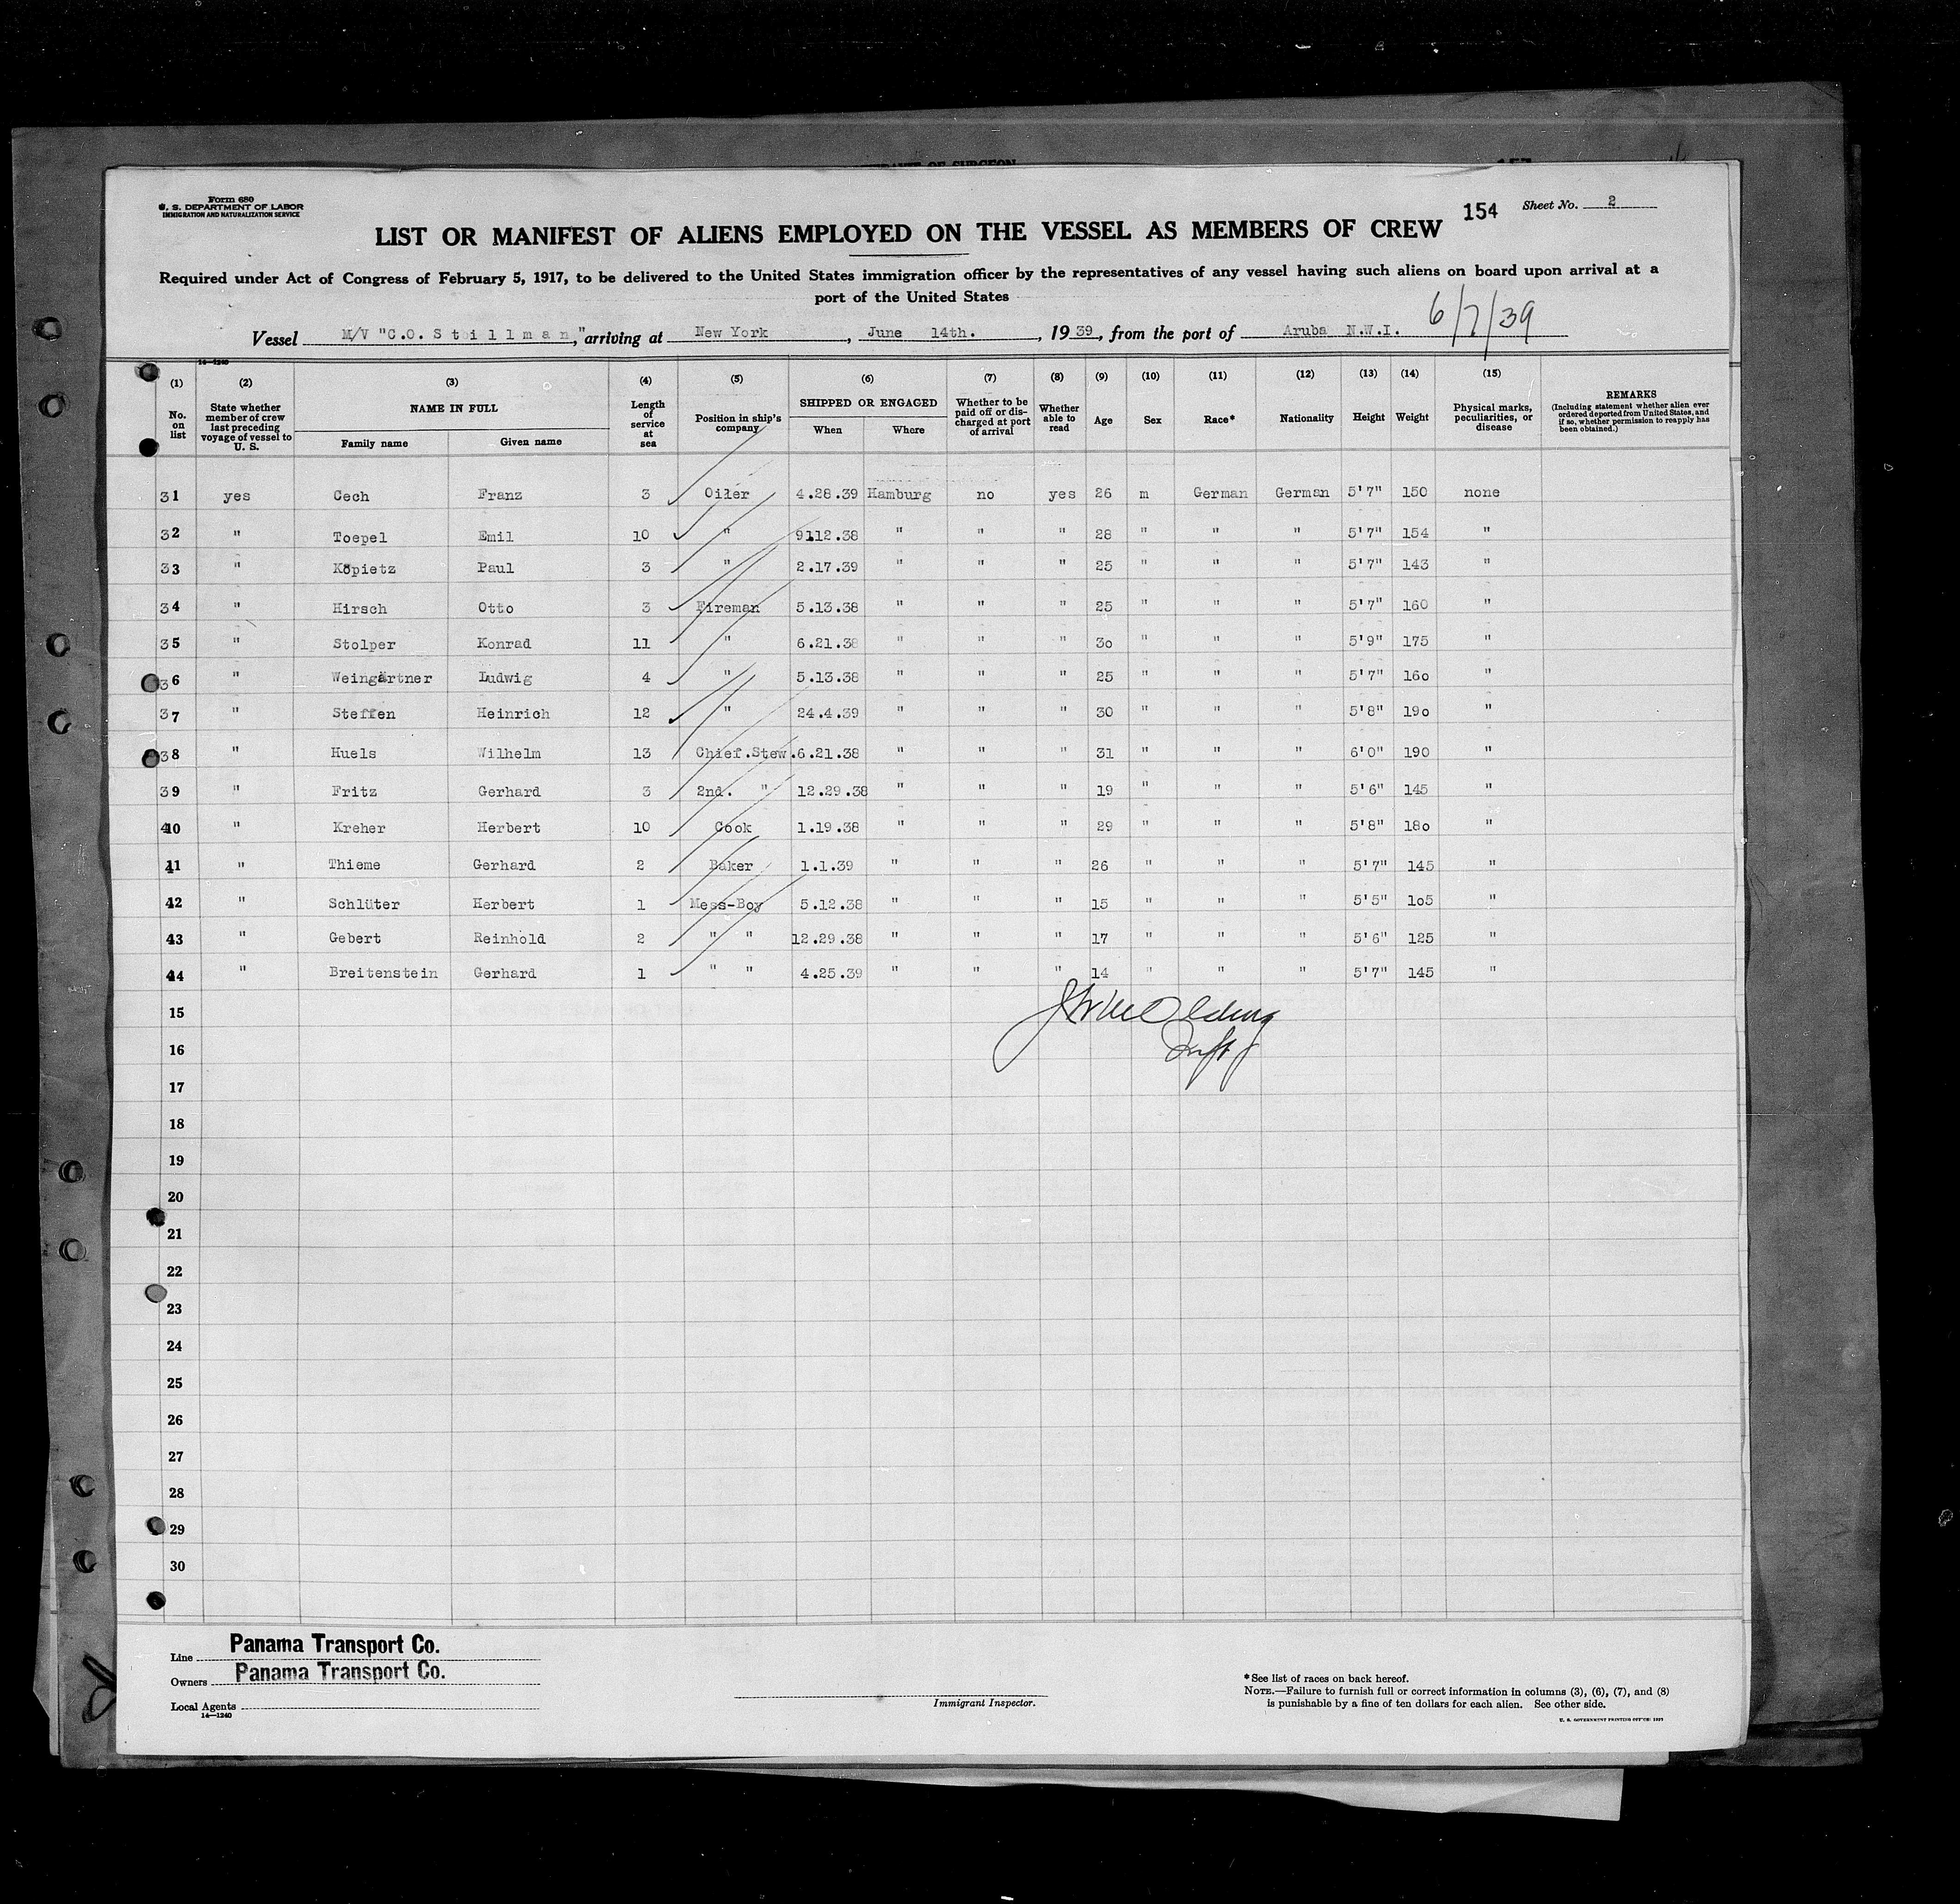 Form 680
U. S. DEPARTMENT OF LABOR
IMMIGRATION AND NATURALIZATION SERVICE
154
Sheet No. 2
LIST OR MANIFEST OF ALIENS EMPLOYED ON THE VESSEL AS MEMBERS OF CREW
Required under Act of Congress of February 5, 1917, to be delivered to the United States immigration officer by the representatives of any vessel having such aliens on board upon arrival at a
port of the United States
6/7/39
Vessel M/V "C.O. Stillman," arriving at New York, June 14th., 1939, from the port of Aruba N.W.I.
14—1240
(1) No. on list (2) State whether member of crew last preceding voyage of vessel to U. S. (3) NAME IN FULL Family name Given name (4) Length of service at sea (5) Position in ship's company (6) SHIPPED OR ENGAGED When Where (7) Whether to be paid off or discharged at port of arrival (8) Whether able to read (9) Age (10) Sex (11) Race* (12) Nationality (13) Height (14) Weight (15) Physical marks, peculiarities, or disease REMARKS (Including statement whether alien ever ordered deported from United States, and if so, whether permission to reapply has been obtained.)
31 yes Cech Franz 3 Oiler 4.28.39 Hamburg no yes 26 m German German 5'7" 150 none
32 " Toepel Emil 10 " 9112.38 " " " 28 " " " 5'7" 154 "
33 " Köpietz Paul 3 " 2.17.39 " " " 25 " " " 5'7" 143 "
34 " Hirsch Otto 3 Fireman 5.13.38 " " " 25 " " " 5'7" 160 "
35 " Stolper Konrad 11 " 6.21.38 " " " 30 " " " 5'9" 175 "
36 " Weingärtner Ludwig 4 " 5.13.38 " " " 25 " " " 5'7" 160 "
37 " Steffen Heinrich 12 " 24.4.39 " " " 30 " " " 5'8" 190 "
38 " Huels Wilhelm 13 Chief.Stew. 6.21.38 " " " 31 " " " 6'0" 190 "
39 " Fritz Gerhard 3 2nd. " 12.29.38 " " " 19 " " " 5'6" 145 "
40 " Kreher Herbert 10 Cook 1.19.38 " " " 29 " " " 5'8" 180 "
41 " Thieme Gerhard 2 Baker 1.1.39 " " " 26 " " " 5'7" 145 "
42 " Schlüter Herbert 1 Mess-Boy 5.12.38 " " " 15 " " " 5'5" 105 "
43 " Gebert Reinhold 2 " " 12.29.38 " " " 17 " " " 5'6" 125 "
44 " Breitenstein Gerhard 1 " " 4.25.39 " " " 14 " " " 5'7" 145 "
15
16
17
18
19
20
21
22
23
24
25
26
27
28
29
30
Line Panama Transport Co.
Owners Panama Transport Co.
Local Agents
14—1240
Immigrant Inspector.
*See list of races on back hereof.
NOTE.—Failure to furnish full or correct information in columns (3), (6), (7), and (8)
is punishable by a fine of ten dollars for each alien. See other side.
U. S. GOVERNMENT PRINTING OFFICE: 1937